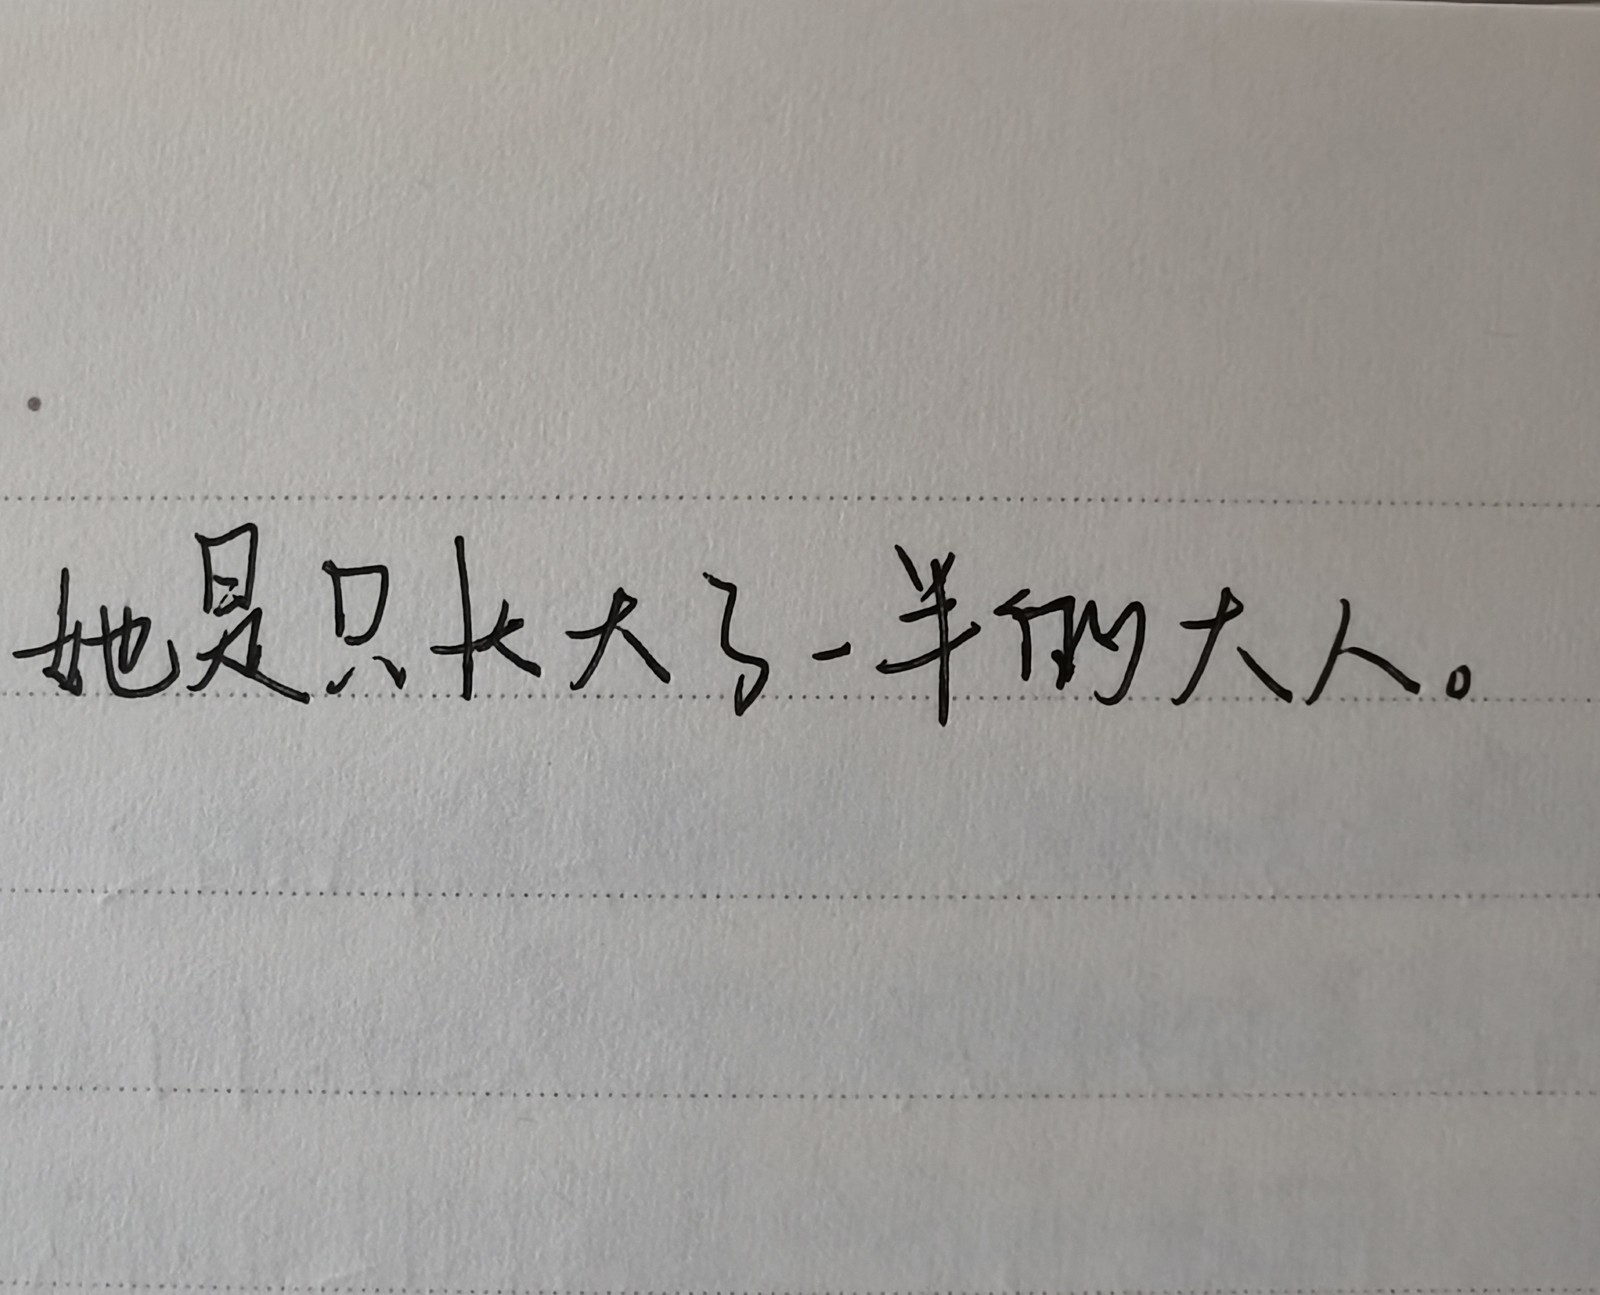 她是只长大了一半的大人。